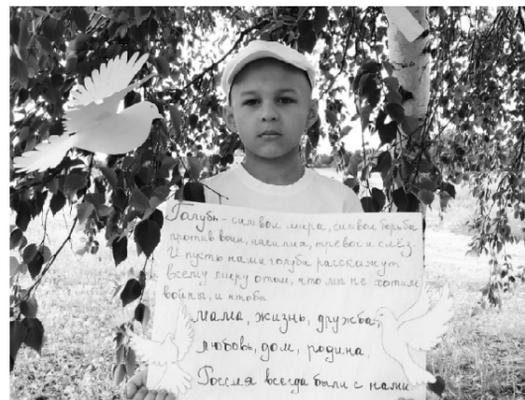 Голубь - символ мира, символ борьбы
против войн, насилия, тревог и слёз.
И пусть нами голуба расскажут
всему миру о том, что мы не хотим
войны, и чтобы
мама, жизнь, дружба,
любовь, дом, родина,
Россия всегда были с нами